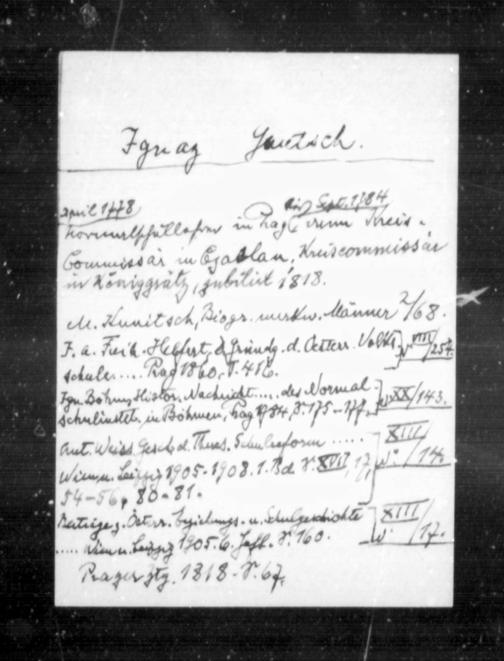 Ignaz Gaetsch.
April 1778 bis Sept. 1784
Normalschullehrer in Prag, dann Kreis-
Commissär in Czaslau, Kreiscommissär
in Königgrätz, jubilirt 1818.
M. Kunitsch, Biogr. merkw. Männer 2/68.
F. A. Frh. Helfert, d. Gründg. d. Oesterr. Volks VIII/257.
schule.... Prag 1860, S. 416.
Ign. Böhm, Histor. Nachricht.... des Normal- XX/143.
schulinstit. in Böhmen, Prag 1784, S. 175-177.
Ant. Weiss, Gesch. d. Theres. Schulreform ..... XIII
Wien u. Leipzig 1905-1908. 1. Bd. S. XVII, 17, /14
54-56, 80-81.
Beiträge z. Österr. Erziehungs- u. Schulgeschichte XIII
..... Wien u. Leipzig 1905. 6. Heft. S. 160. /17.
Prager Ztg. 1818. S. 67.